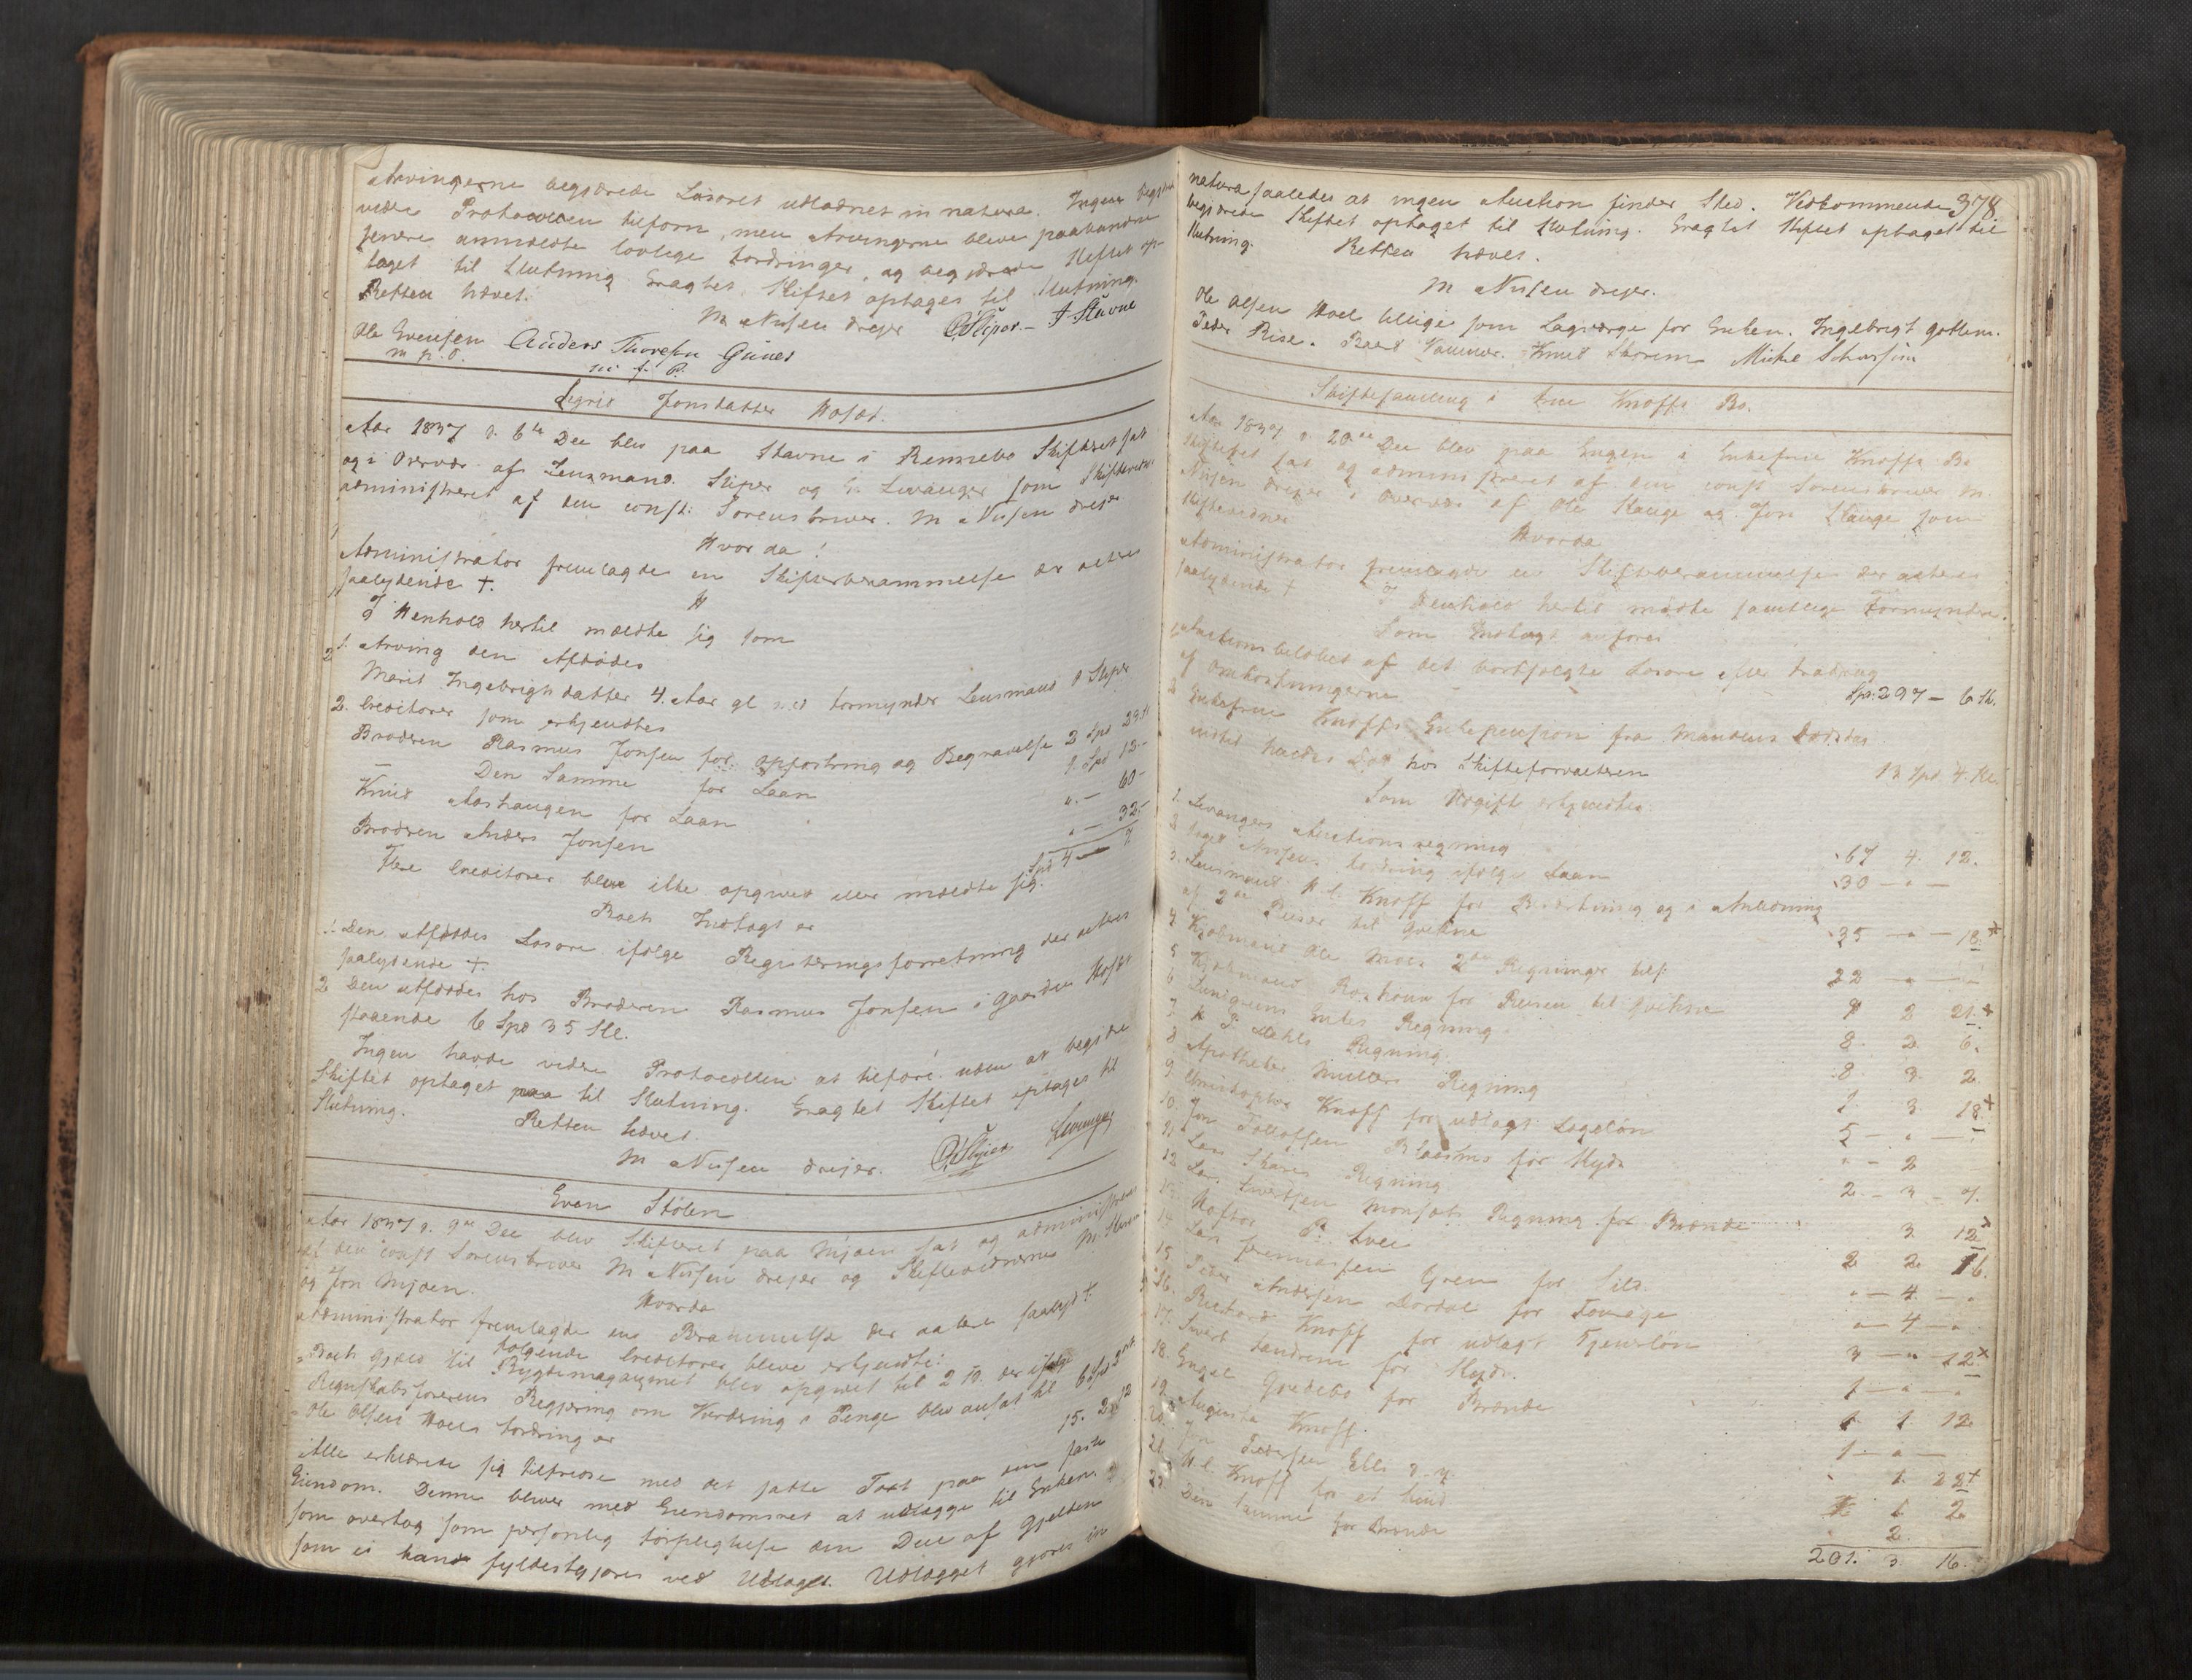 Arvingerne begjærede Løsøret udlodnet in natura. Ingen begjærede
videre Protocollen tilført, men Arvingerne bleve
anmeldte lovlige Fordringer, og begjærede Skiftet op-
taget til Slutning. Eragtet Skiftet optages til Slutning.
Retten hævet.
M Nissen Dreyer
Ole Evensen Anders Thoresen Gunnes
m. p. P.
Jonsdatter Hofset.
Aar 1837 d. 6te Dec blev paa Stavne i Rennebo Skifteret sat
og i Overvær af Lensmand Sliper og Levanger som Skifteretsv:
administreret af den const: Sorenskriver M Nissen Dreyer
Hvorda!
Administrator fremlagde en Skifteberammelse der acteres
saalydende +.
I Henhold hertil meldte sig som
1. Arving den Afdødes
Marit Ingebrigtsdatter 4 Aar gl med Formynder Lensmand Sliper
2. Creditorer som erkjendtes
Broderen Rasmus Jonsen for opfostring og Begravelse 2 Spd
Den Samme for Laan 1. Spd 12-
Knud Aashaugen for Laan „ - 60-
Broderen Anders Jonsen „ - 32-
Spd 4 - 7
Flere Creditorer bleve ikke opgivet eller meldte sig.
Boets Indtægt er
1. Den Afdødes Løsøre ifølge Registeringsforretning der acteres
saalydende +.
2 Den Afdødes hos Broderen Rasmus Jonsen i Gaarden Hofset
staaende 6 Spd 35 Sk.
Ingen havde videre Protocollen at tilføre uden at begjære
Skiftet optaget paa til Slutning. Eragtet Skiftet optages til
Slutning.
Retten hævet.
M Nissen Dreyer. Levanger
Even Stølen
Aar 1837 d. 9de Dec blev Skifteret paa Mjøen sat og administreret
af den const Sorenskriver M Nissen Dreyer og Skiftevidnerne
og Jon Mjøen.
Hvorda
Administrator fremlagde en Berammelse der acteres saalyd +.
Følgende Creditorer bleve erkjendte:
Boets Gjæld til Bygdemagazinet blev opgivet til 2 Td. der ifølge
Regnskabsførerens Begjæring om Vurdering i Penge blev ansat til 6 Spd
Ole Olsen Hoels Fordring er 15. 2. 12
Alle erklærede sig tilfredse med det satte Taxt paa den faste
Eiendom. Denne bliver med Eiendomsret at udlægge til Enken
som overtog som personlig Forpligtelse den Deel af Gjelden
som ei kande fyldestgjøres ved Udlæget. Udlægget gjøres in
378.
natura saaledes at ingen Auction finder Sted. Vedkommende
begjærede Skiftet optaget til Slutning. Eragtet Skiftet optaget til
Slutning.
Retten hævet.
M Nissen Dreyer.
Ole Olsen Hoel tillige som Lagværge for Enken. Ingebrigt
Peder Rise. Knud
Skiftesamling i Frue Knoffs Bo.
Aar 1837 d. 20de Dec blev paa Engen i Enkefrue Knoffs Bo
Skifteret sat og administreret af den const Sorenskriver M.
Nissen Dreyer i Overvær af Ole Kauge og Jon Stange som
Skiftevidner
Hvorda
Administrator fremlagde en Skifteberammelse der acteres
saalydende + I Henhold hertil mødte samtlige Formyndere.
Som Indtægt anføres
1 Auctionsbeløbet af det bortsolgte Løsøre efter Fradrag
af Omkostningerne Spd. 297 - 6 sk.
2 Enkefrue Knoffs Enkepension fra Mandens Dødsdag
indtil hendes Død hos Skifteforvalteren 13 Spd. 4.
Som Udgift erkjendtes
1. Levangers Auctionsregning 67 4. 12.
2 Nissens Fordring ifølge Laan 30 - „ -
3. Lensmand H C. Knoff for Bevertning og i Anledning
af 2de Reiser til Qvikne 35 - „ - 18. +
4 Kjøbmand Ole Moes 2de Regninger tils: 22 - „ -
5 Kjøbmand for Reisen til Qvikne 9 2 21. +
6 Lundgrens Enkes Regning 8. 2 6.
7 Regning. 8. 3. 2
8 Apotheker Møllers Regning 1 3. 18. +
9. Christopher Knoff for udlagt Lægeløn 5 - „ -
10. Jon Tollofsen for Skyds „ - 2
11. Lars Skares Regning 2 - 3 - 7.
12. Lars Sivertsen Monsæts Regning for Brænde 3 12. +
13. 2 2. 16.
14. Lars Jeremiasen Gren for Sild. „ - 4 - „
15. Peder Andersen Dordal for Fourage „ - 4 - „
16. Richard Knoff for udlagt Tjenerløn 3 - „ 12. +
17. Sivert for Skyds. 1 - „ - „
18. Engel for Brænde 1 1 12
19. Augusta Knoff. 1 - „ -
20. Jon Pedersen 1. 22. +
21. H. C. Knoff for et Lund 1 2
22. Den samme for Brænde 2.
201. 3. 16.